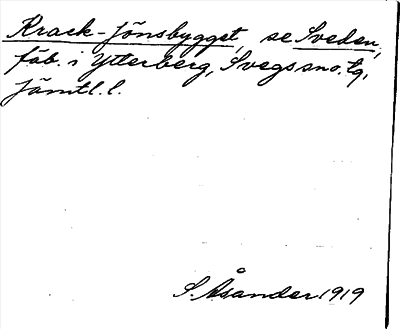 Krack-Jönsbygget, se Sveden,
fäb. i Ytterberg, Svegs sno. tg,
Jämtl. l.
S. Åsander 1919